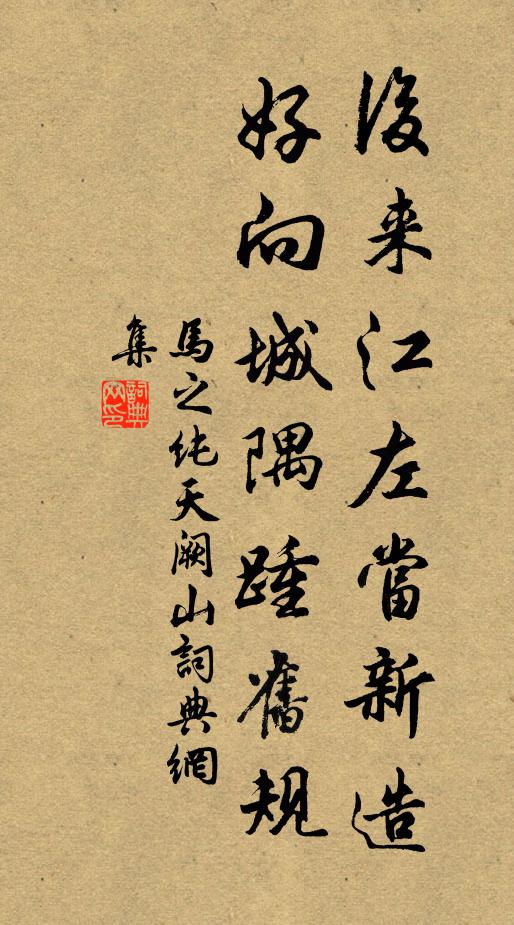 後来江左當新造
好向城隅踵舊規
馬之純天闕山詞典網
集
詞典網印